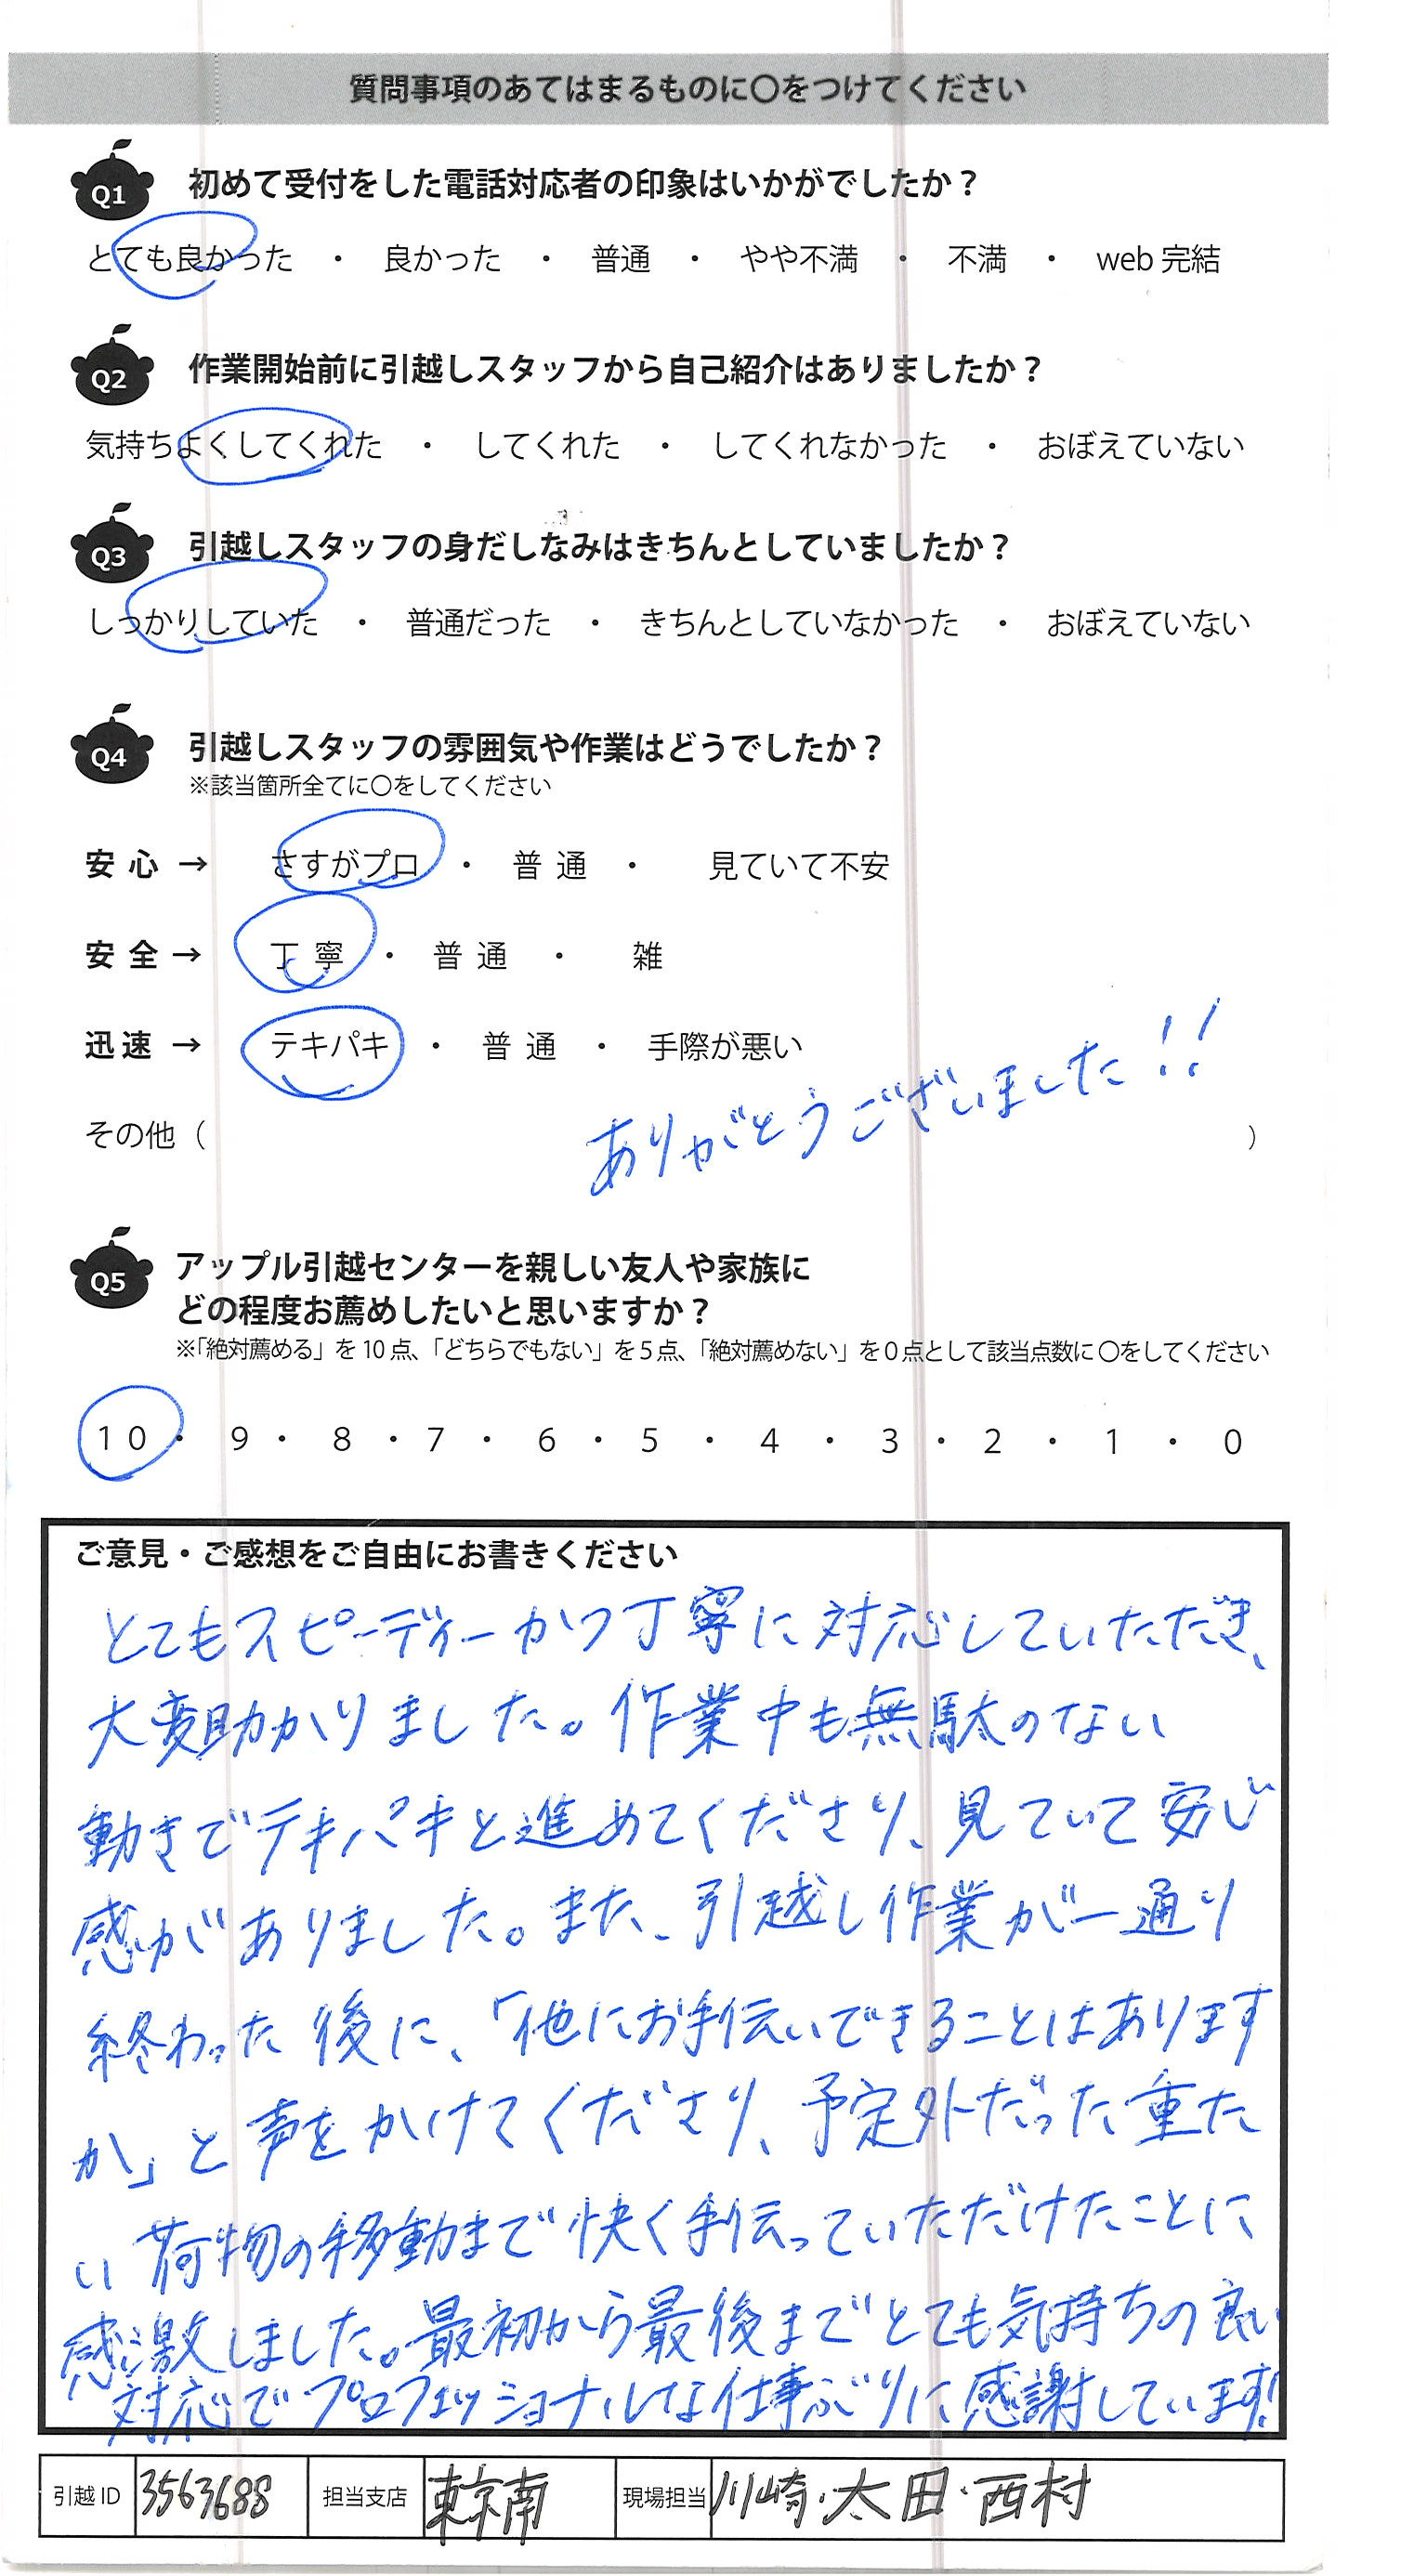 質問事項のあてはまるものに〇をつけてください
Q1 初めて受付をした電話対応者の印象はいかがでしたか？
とても良かった ・ 良かった ・ 普通 ・ やや不満 ・ 不満 ・ web 完結
Q2 作業開始前に引越しスタッフから自己紹介はありましたか？
気持ちよくしてくれた ・ してくれた ・ してくれなかった ・ おぼえていない
Q3 引越しスタッフの身だしなみはきちんとしていましたか？
しっかりしていた ・ 普通だった ・ きちんとしていなかった ・ おぼえていない
Q4 引越しスタッフの雰囲気や作業はどうでしたか？
※該当箇所全てに〇をしてください
安心 → さすがプロ ・ 普通 ・ 見ていて不安
安全 → 丁寧 ・ 普通 ・ 雑
迅速 → テキパキ ・ 普通 ・ 手際が悪い
その他（ ありがとうございました!! ）
Q5 アップル引越センターを親しい友人や家族に
どの程度お薦めしたいと思いますか？
※「絶対薦める」を10点、「どちらでもない」を5点、「絶対薦めない」を0点として該当点数に〇をしてください
10 ・ 9 ・ 8 ・ 7 ・ 6 ・ 5 ・ 4 ・ 3 ・ 2 ・ 1 ・ 0
ご意見・ご感想をご自由にお書きください
とてもスピーディーかつ丁寧に対応していただき、
大変助かりました。作業中も無駄のない
動きでテキパキと進めてくださり、見ていて安心
感がありました。また、引越し作業が一通り
終わった後に、「他にお手伝いできることはあります
か」と声をかけてくださり、予定外だった重た
い荷物の移動まで快く手伝っていただけたことに
感激しました。最初から最後までとても気持ちの良い
対応でプロフェッショナルな仕事ぶりに感謝しています!
引越ID 3563688 担当支店 東京南 現場担当 川崎・太田・西村